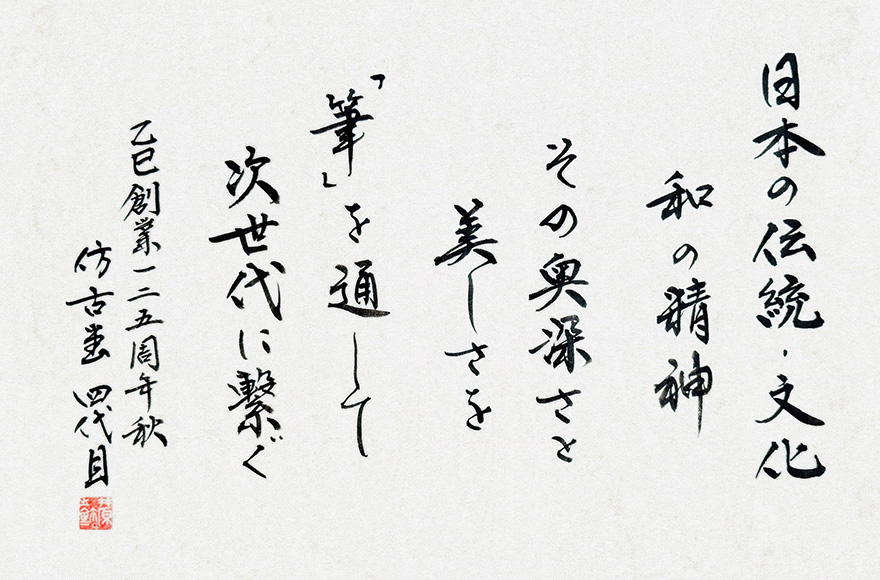 日本の伝統・文化
和の精神
その奥深さと
美しさを
「筆」を通して
次世代に繋ぐ
乙巳創業一二五周年秋
仿古堂 四代目